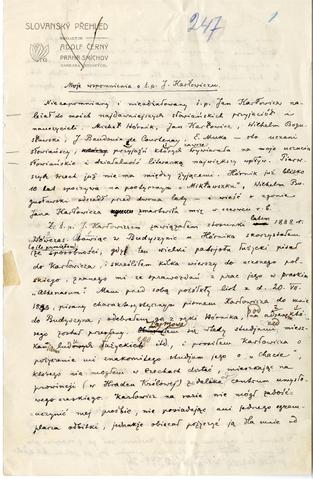 SLOVANSKÝ PŘEHLED
REDAKTOR
ADOLF ČERNÝ
PRAHA-SMÍCHOV
247
Moje wspomnienia o ś.p. J. Karłowiczu.
Niezapomniany i nieodżałowany ś.p. Jan Karłowicz na-
leżał do moich najdawniejszych słowiańskich przyjaciół a
nauczycieli. Michał Hórnik, Jan Karłowicz, Wilhelm Bogu-
sławski, J. Baudouin de Courtenay, E. Muka — oto uczeni
słowiańscy, przyjaźń których wywarła na moje uczucia
słowiańskie i działalność literacką największy wpływ. Pierw-
szych trzech już nie ma między żyjącemi. Hórnik już blisko
10 lat spoczywa na budyszyńskim „Mikławšku”, Wilhelm Bo-
gusławski odszedł przed dwoma laty — wieść o zgonie
Jana Karłowicza zmartwiła mię w czerwcu r. b.
Z ś. p. J. Karłowiczem zawiązałem stosunki latem 1888 r.
Bawiąc w Budyszynie u Hórnika skorzystałem
ze sposobności, gdyż ten wielki patrjota łużycki pisał
do Karłowicza, i skreśliłem kilka wierszy do uczonego pol-
skiego, znanego mi ze sprawozdań z prac jego w praskim
„Athenaeum”. Mam przed sobą pożółkły list z d. 20. VII.
1888, pisany charakterystycznym pismem Karłowicza do mnie
do Budyszyna; odebrałem go z ręki Hórnika,
jego został posyłany. Zajmowałem się wtedy studjami miesz-
kań ludowych łużyckich itd. i prosiłem Karłowicza o
pożyczenie mi znakomitego studjum jego o „chacie”,
którego nie mogłem w Czechach dostać, mieszkając na
prowincji (w Hradcu Královej) zdaleka centrum umysło-
wego czeskiego. Karłowicz na razie nie mógł zadość-
uczynić mej prośbie, nie posiadając ani jednego egzem-
plarza odbitki, jednakże obiecał pożyczyć ją dla mnie od